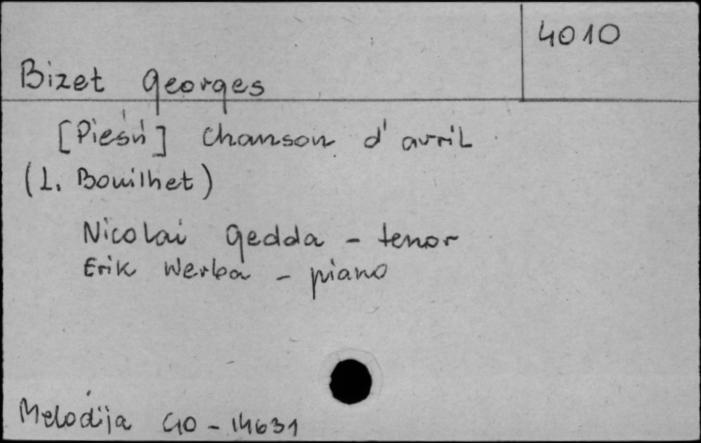 4010
Bizet Georges
[Pieśń] Chanson d'avril
(L. Bouilhet)
Nicolai Gedda - tenor
Erik Werba - piano
Melodija C10-14631